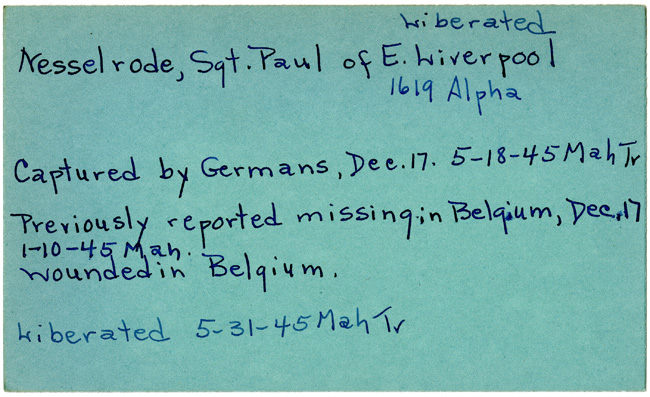 Liberated
Nesselrode, Sgt. Paul of E. Liverpool
1619 Alpha
Captured by Germans, Dec. 17. 5-18-45 Mah Tr
Previously reported missing in Belgium, Dec. 17
1-10-45 Mah.
Wounded in Belgium.
Liberated 5-31-45 Mah Tr